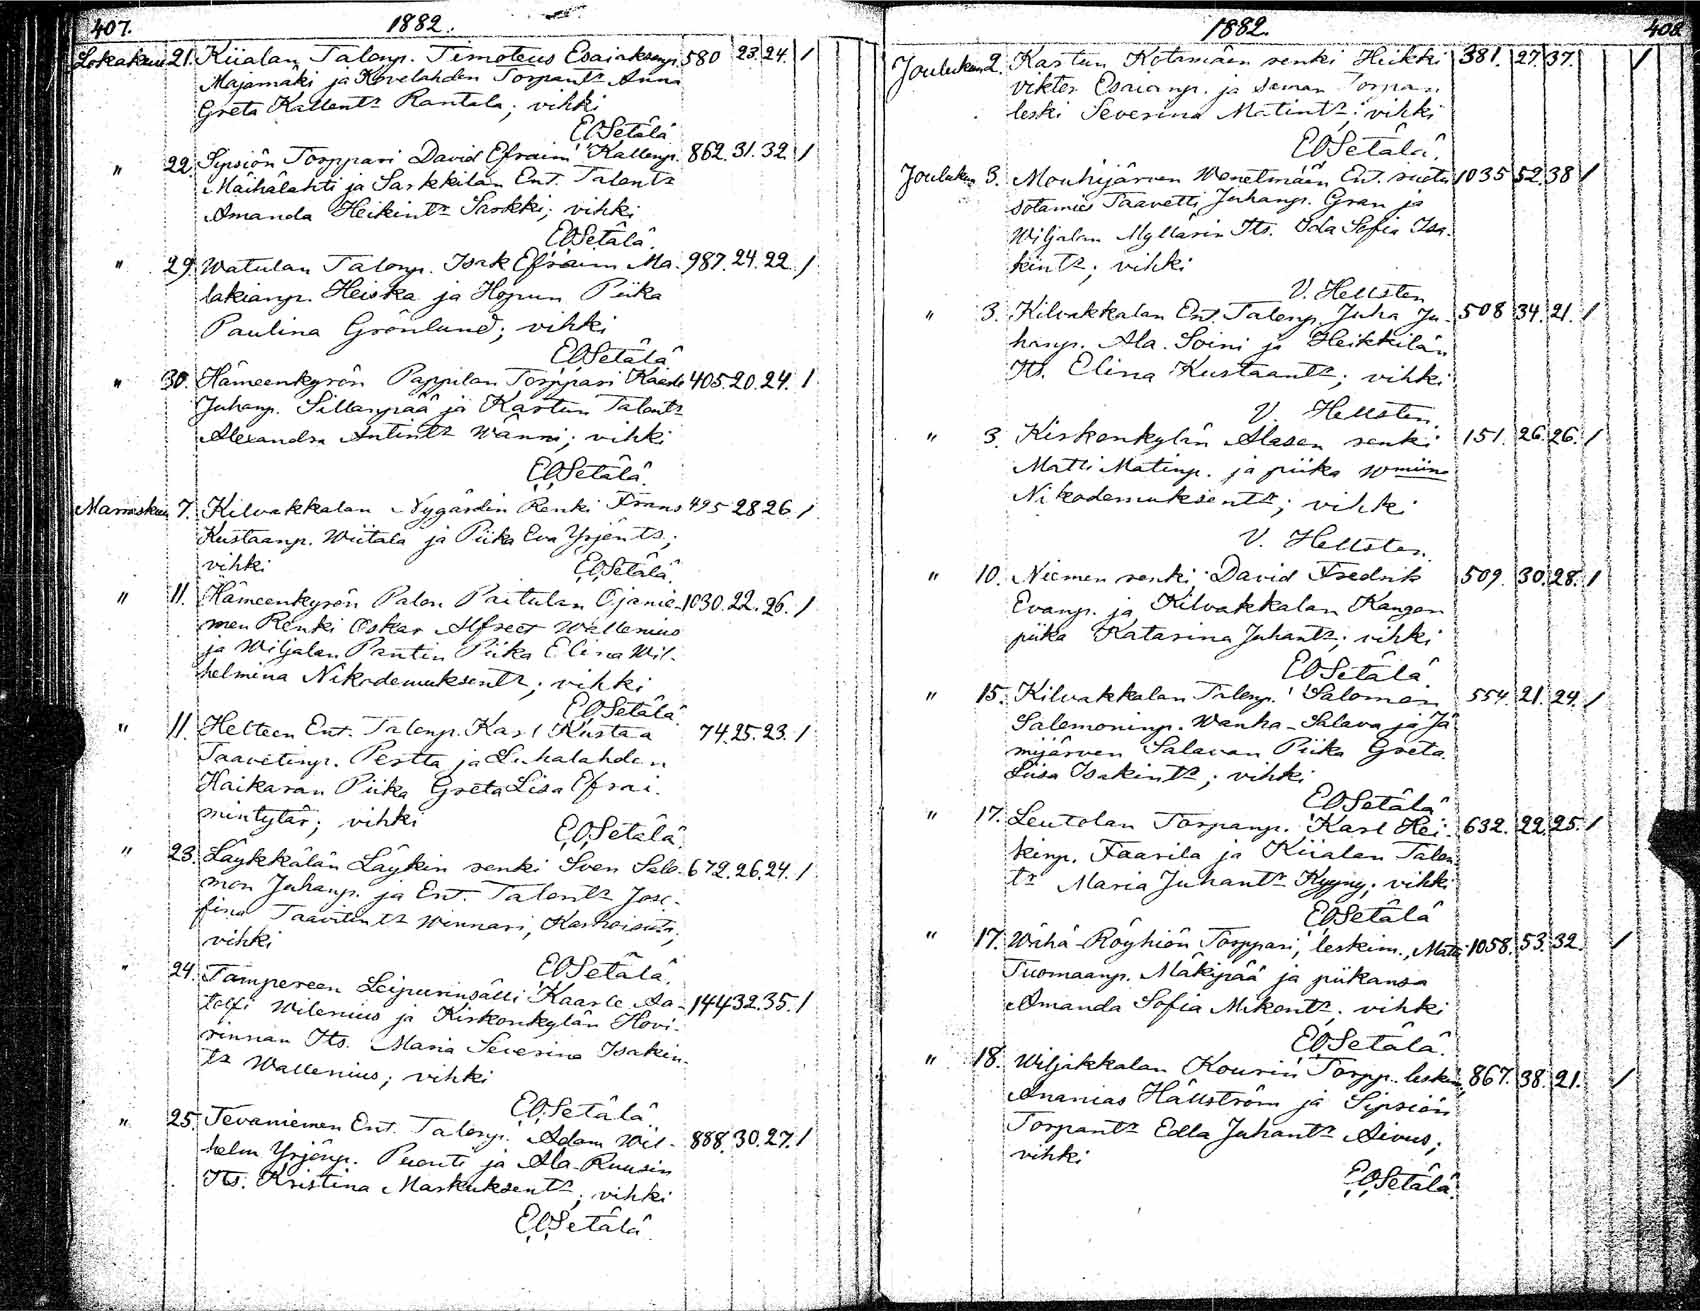 407.
1882.
Lokakuu 21. Kiialan Talonp. Timoteus Esaiaksenp. 580 23. 24. /
Majamäki ja Kovelahden Torpantr Anna
Greta Kallentr Rantala; vihki
EOSetälä
" 22. Sipsiön Torppari David Efraim Kallenp. 862. 31. 32. /
Mäihälahti ja Sarkkilan Ent. Talontr
Amanda Heikintr Sarkki; vihki
EOSetälä.
" 29. Watulan Talonp. Isak Efraim Ma- 987. 24. 22. /
lakianp. Heiska ja Hopun Piika
Paulina Grönlund; vihki
EOSetälä
" 30. Hämeenkyrön Pappilan Torppari Kaarle 405. 20. 24. /
Juhanp. Sillanpää ja Kartun Talontr
Alexandra Antintr Wänni; vihki
EOSetälä.
Marraskuu 7. Kilvakkalan Nygårdin Renki Frans 495 28 26 /
Kustaanp. Wiitala ja Piika Eva Yrjönts;
vihki EOSetälä.
" 11. Hämeenkyrön Palon Paitulan Ojanie- 1030. 22. 26. /
men Renki Oskar Alfred Wallenius
ja Wiljalan Pantin Piika Elina Wil-
helmina Nikodemuksentr; vihki
EOSetälä.
" 11. Helteen Ent. Talonp. Karl Kustaa 74. 25. 23. /
Taavetinp. Pertta ja Luhalahden
Haikaran Piika Greta Lisa Efrai-
mintytär; vihki
EOSetälä.
" 23. Läykkälän Läykin renki Sven Salo- 672. 26. 24. /
mon Juhanp. ja Ent. Talontr Jose-
fina Taavitintr Winnari,
vihki
EOSetälä.
" 24. Tampereen Leipurinsälli Kaarle Aa- 144 32. 35. /
tolfi Wilenius ja Kirkonkylän Hovi-
rinnan Its. Maria Severina Isakin-
tr Wallenius; vihki
EOSetälä
" 25. Tevaniemen Ent. Talonp. Adam Wil- 888. 30. 27. /
helm Yrjönp. Puonti ja Ala-Ruusin
Its. Kristina Markuksentr; vihki
EOSetälä
1882.
408.
Joulukuu 2. Kartun Kotamäen renki Heikki 381. 27. 37. /
Viktor Esaianp. ja saman Torpan
leski Severina Matintr; vihki
EOSetälä.
Joulukuu 3. Mouhijärven Wenetmäen Ent. ruotu 1035 52. 38 /
sotamies Taavetti Juhanp. Gran ja
Wiljalan Myllärin Its. Ida Sofia Isa-
kintr; vihki
V. Hellsten
" 3. Kilvakkalan Ent. Talonp. Juha Ju- 508 34. 21. /
hanp. Ala-Soini ja Heikkilän
Its. Elina Kustaantr; vihki
V. Hellsten.
" 3. Kirkonkylän Alasen renki 151. 26. 26. /
Matti Matinp. ja piika Wmiina
Nikodemuksentr; vihki
V. Hellsten.
" 10. Niemen renki David Fredrik 509. 30. 28. /
Evanp. ja Kilvakkalan Kangon
piika Katarina Juhantr; vihki
EOSetälä.
" 15. Kilvakkalan Talonp. Salomon 554. 21. 24. /
Salomoninp. Wanha-Salava ja Jä-
mijärven Salavan Piika Greta
Liisa Isakintr; vihki
EOSetälä
" 17. Leutolan Torpanp. Karl Hei- 632. 22. 25. /
kinp. Faarila ja Kiialan Talon-
tr Maria Juhantr Kyyny; vihki
EOSetälä
" 17. Wähä-Röyhiön Torppari, leskim., Matti 1058. 53. 32. /
Tuomaanp. Mäkipää ja piikansa
Amanda Sofia Mikontr; vihki
EOSetälä.
" 18. Wiljakkalan Kourin Torpp. leskim. 867. 38. 21. /
Ananias Hällström ja Sipsiön
Torpantr Edla Juhantr Aivus;
vihki
EOSetälä.